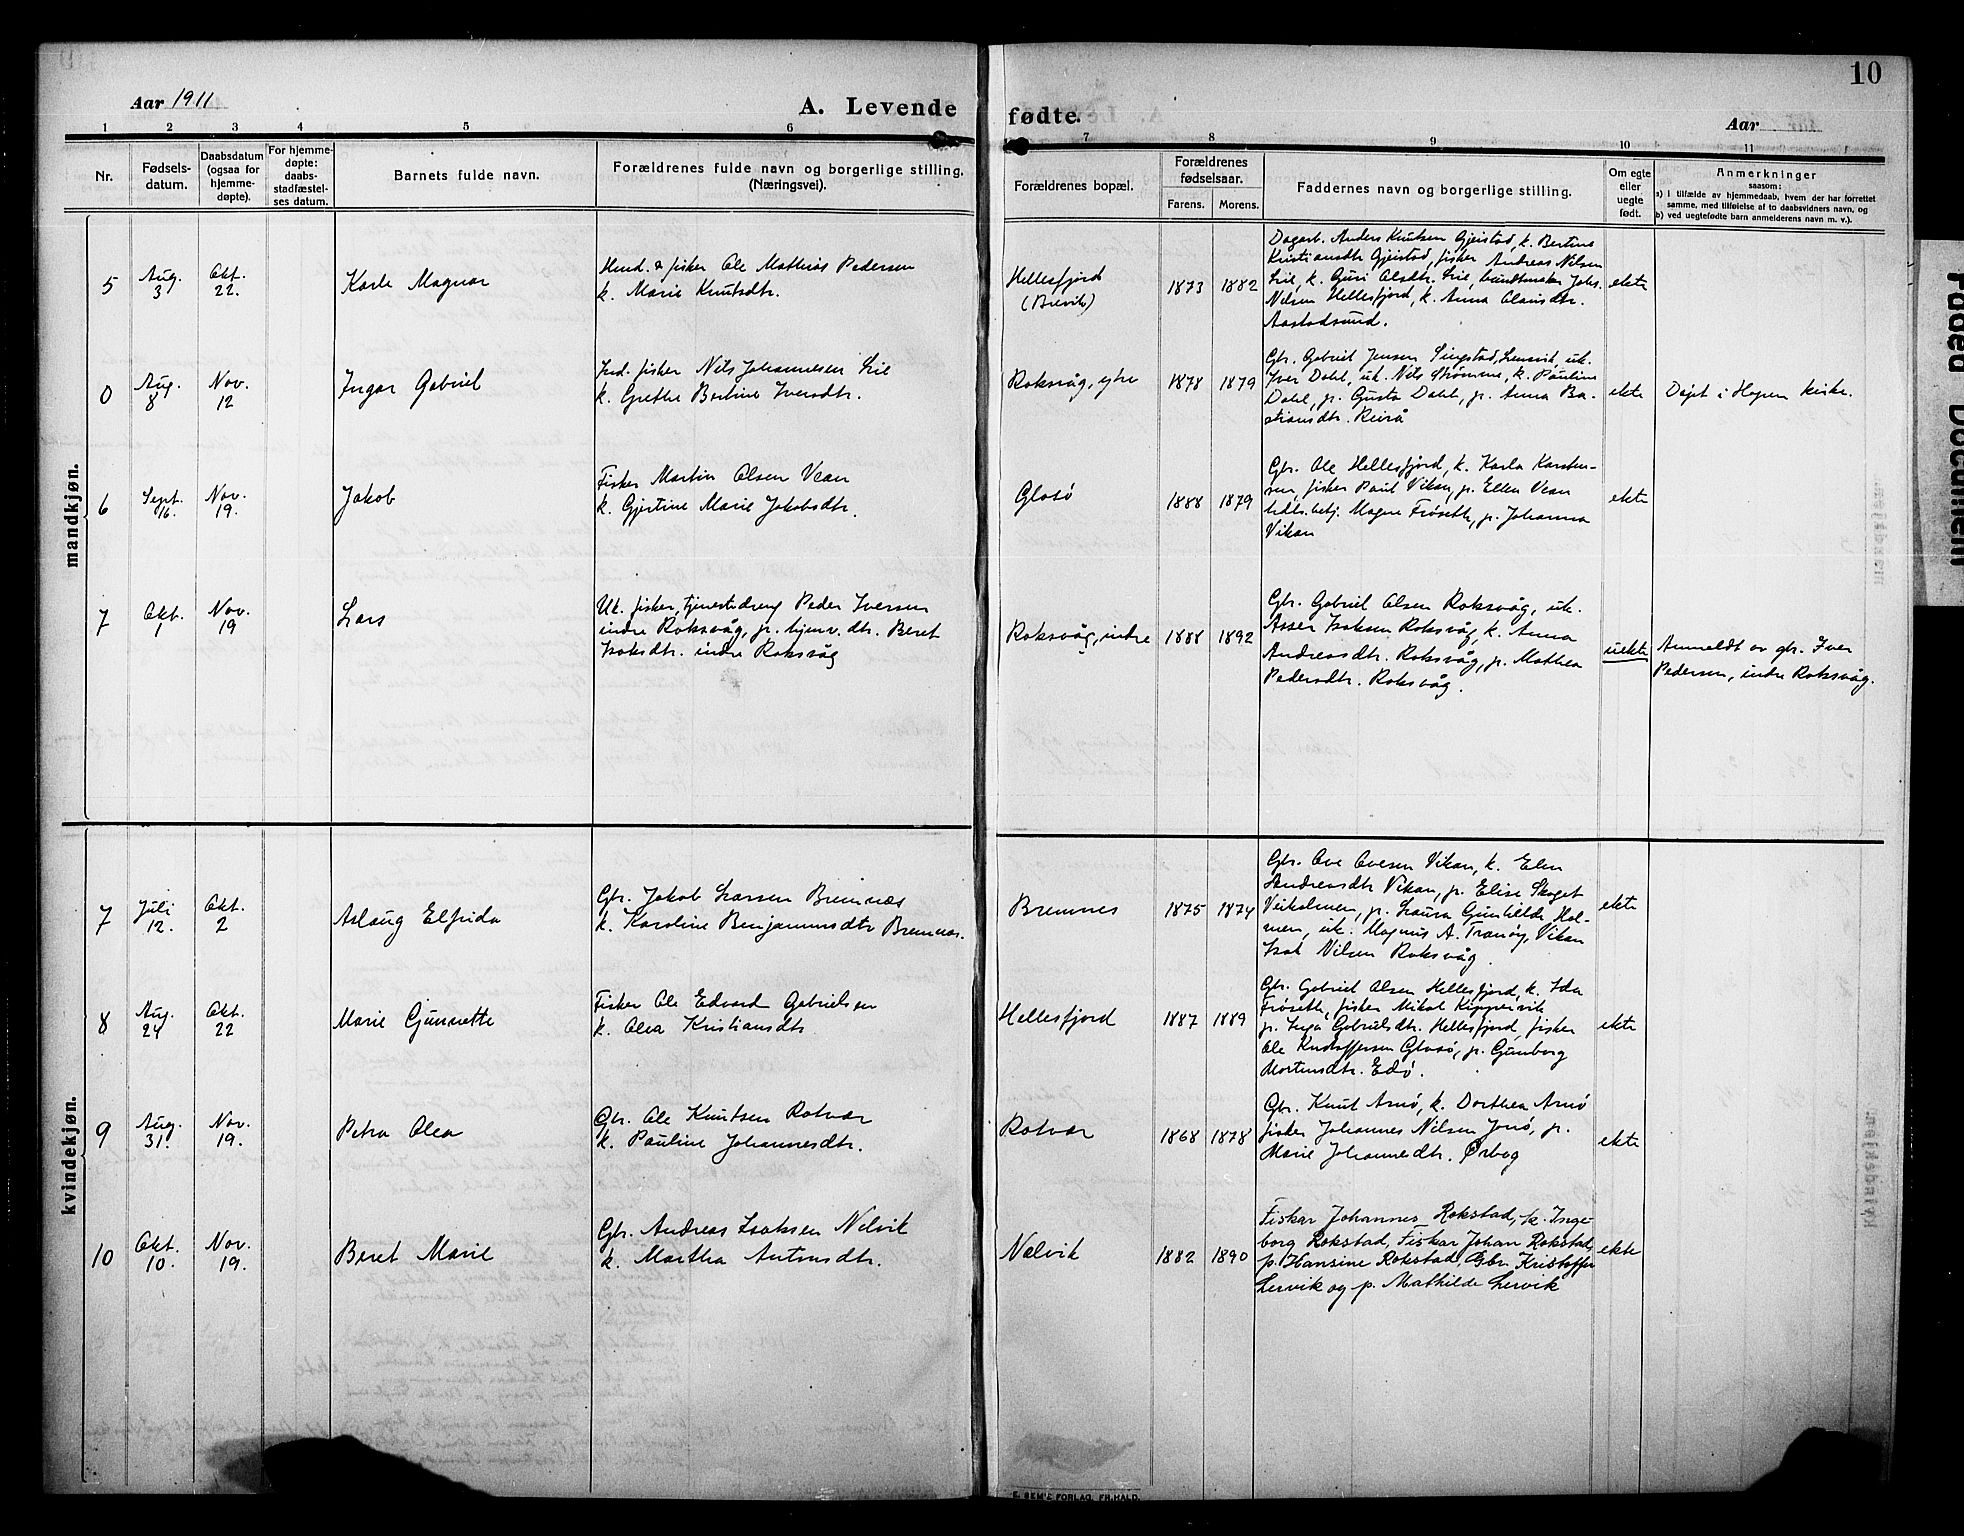 10
Aar 1911
A. Levende fødte.
Aar
1 2 3 4 5 6 7 8 9 10 11
Nr.
Fødsels-
datum.
Daabsdatum
(ogsaa for
hjemme-
døpte).
For hjemme-
døpte:
daabs-
stadfæstel-
ses datum.
Barnets fulde navn.
Forældrenes fulde navn og borgerlige stilling.
(Næringsvei).
Forældrenes bopæl.
Forældrenes
fødselsaar.
Farens. Morens.
Faddernes navn og borgerlige stilling.
Om egte
eller
uegte
født.
Anmerkninger
saasom:
a) i tilfælde av hjemmedaab, hvem der har forrettet
samme, med tilføielse af to daabsvidners navn, og
b) ved uegtefødte barn anmelderens navn m. v.).
mandkjøn.
5
Aug.
3
Okt.
22.
Karle Magnar
Husd. & fisker Ole Mathias Pedersen
k. Marie Knutsdtr.
Hellesfjord
(Brevik)
1873 1882
Dagarb. Anders Knutsen Gjeistad, k. Bertine
Kristiansdtr Gjeistad, fisker Andreas Nilsen
Lie, k. Guri Olsdtr. Lie, bundtmaker Johs.
Nilsen Hellesfjord, k. Anna Olausdtr.
Aastadsund.
ekte
0
Aug.
8
Nov.
12
Ingar Gabriel
Ind. fisker Nils Johannesen Lie
k. Grethe Bertine Iversdtr.
Roksvåg, ytre
1878 1879
Gbr. Gabriel Jensen Singstad, Lensvik, uk.
Iver Dahl, uk. Nils Strømme, k. Pauline
Dahl, p. Gusta Dahl, p. Anna Ba-
stiansdtr. Reirå
ekte
Døpt i Hopen kirke.
6
Sept.
16.
Nov.
19.
Jakob
Fisker Martin Olsen Vean
k. Gjertine Marie Jakobsdtr.
Glosø
1888 1879
Gbr. Ole Hellesfjord, k. Karla Karsten-
sen, fisker Paul Vikan, p. Ellen Vean
hdls.betj. Magne Frøseth, p. Johanna
Vikan
ekte
7
Okt.
1
Nov.
19
Lars
Uk. fisker, tjenestedreng Peder Iversen
indre Roksvåg, p. hjemv. dtr. Beret
Isaksdtr. indre Roksvåg
Roksvåg, indre
1888 1892
Gbr. Gabriel Olsen Roksvåg, uk.
Asser Isaksen Roksvåg, k. Anna
Andreasdtr. Roksvåg, p. Mathea
Pedersdtr. Roksvåg.
uekte
Anmeldt av gbr. Iver
Pedersen, indre Roksvåg.
kvindekjøn.
7
Juli
12.
Okt.
2
Aslaug Elfrida
Gbr. Jakob Larsen Bremnes
k. Karoline Benjaminsdtr Bremnes.
Bremnes
1875 1874
Gbr. Ove Ovesen Vikan, k. Elen
Andreasdtr Vikan, p. Elise Skaget
Veiholmen, p. Laura Gunhilde Hol-
men, uk. Magnus A. Tranøy, Vikan
Isak Nilsen Roksvåg.
ekte
8
Aug.
24
Okt.
22
Marie Gjunnette
Fisker Ole Edvard Gabrielsen
k. Olea Kristiansdtr.
Hellesfjord
1887 1889
Gbr. Gabriel Olsen Hellesfjord, k. Ida
Frøseth, fisker Mikal Kippervik
p. Inga Gabrielsdtr. Hellesfjord, fisker
Ole Kristoffersen Glosø, p. Gunborg
Mortensdtr. Edø.
ekte
9
Aug.
31.
Nov.
19.
Petra Olea
Gbr. Ole Knutsen Rotvær
k. Pauline Johannesdtr.
Rotvær
1868 1878
Gbr. Knut Arnø, k. Dorthea Arnø
fisker Johannes Nilsen Jøsø, p.
Marie Johannesdtr. Ørbog
ekte
10
Okt.
10.
Nov.
19.
Beret Marie
Gbr. Andreas Isaksen Nelvik
k. Martha Antonsdtr.
Nelvik
1882 1890
Fiskar Johannes Rokstad, k. Inge-
borg Rokstad, Fiskar Johan Rokstad,
p. Hansine Rokstad, Gbr. Kristoffer
Lervik og p. Mathilde Lervik
ekte
E. SEM'S FORLAG, FR.HALD.
Faded Document